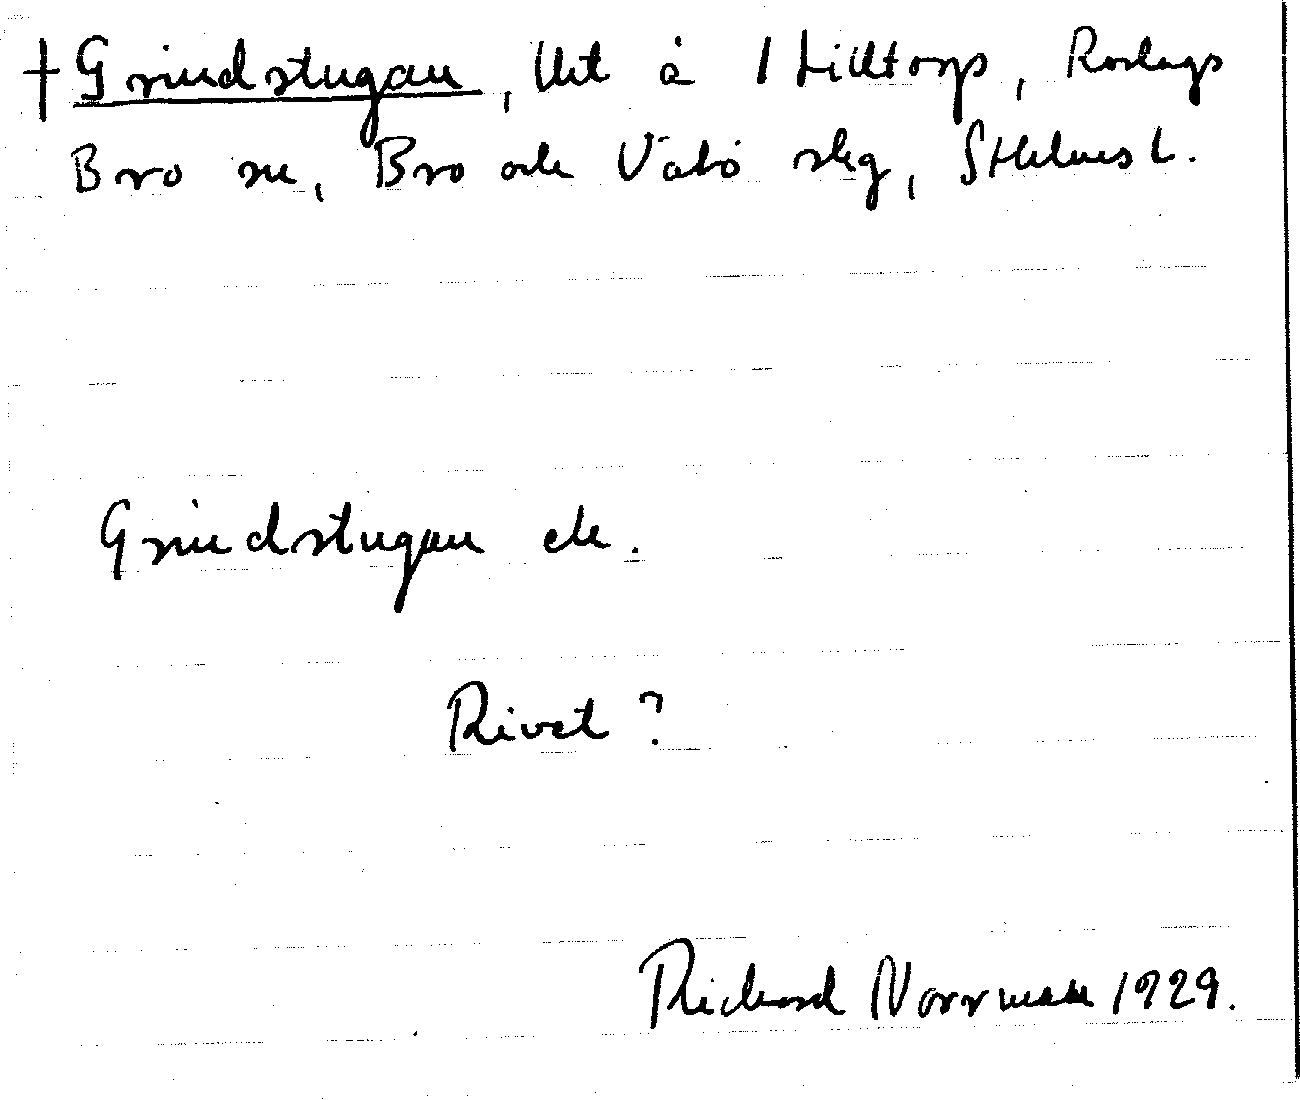 † Grindstugan, lht å 1 Lilltorp, Roslags
Bro sn, Bro och Vätö skg, Sthlms l.
Grindstugan ek.
Rivet?
Richard Norrman 1929.